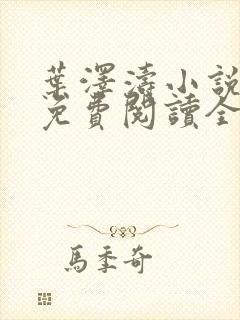 葉澤濤小說
免費閱讀全
馬季奇